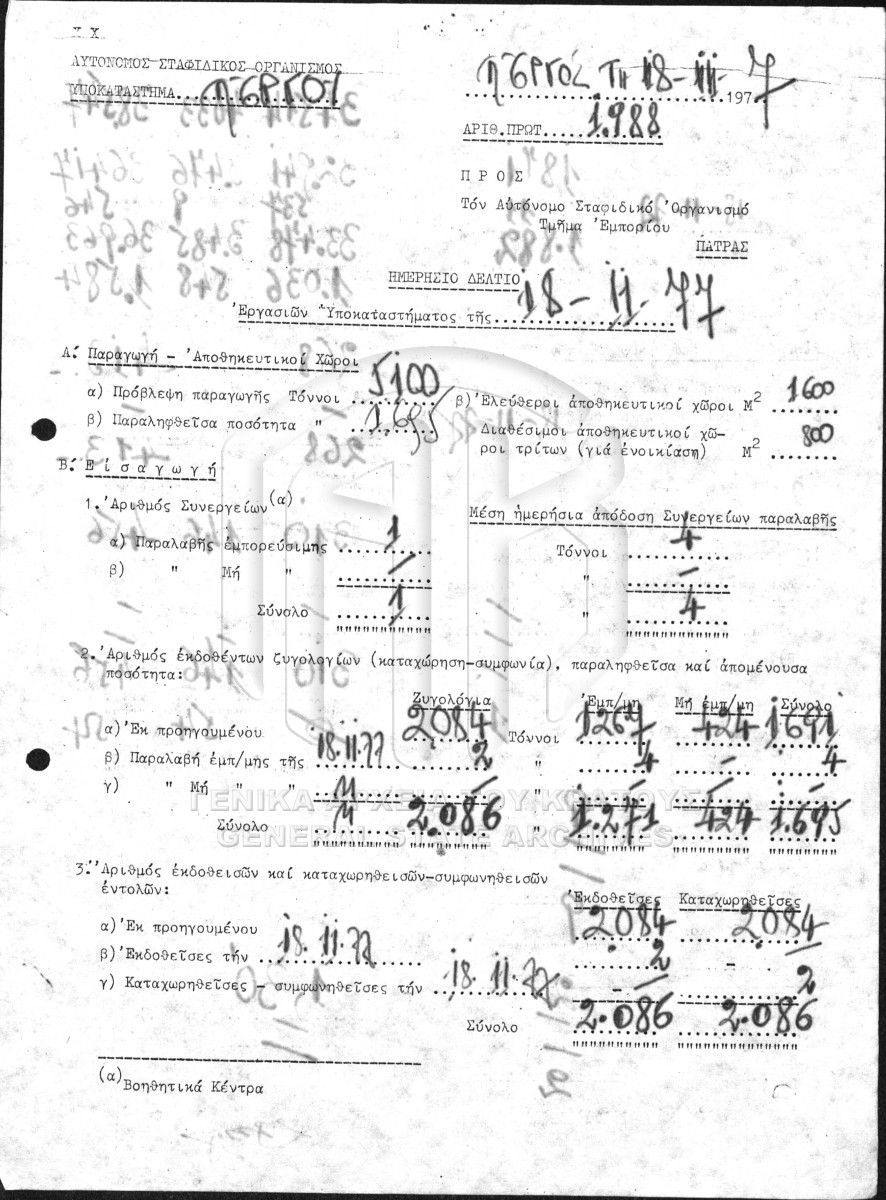 Χ Χ
ΑΥΤΟΝΟΜΟΣ ΣΤΑΦΙΔΙΚΟΣ ΟΡΓΑΝΙΣΜΟΣ
ΥΠΟΚΑΤΑΣΤΗΜΑ...Πύργου
Πύργος τη 18-11-1977
ΑΡΙΘ.ΠΡΩΤ.....1.988
Π Ρ Ο Σ
Τόν Αὐτόνομο Σταφιδικό Ὀργανισμό
Τμῆμα Ἐμπορίου
ΠΑΤΡΑΣ
ΗΜΕΡΗΣΙΟ ΔΕΛΤΙΟ
Ἐργασιῶν Ὑποκαταστήματος τῆς...18-11-77
Α. Παραγωγή - Ἀποθηκευτικοί Χῶροι
α) Πρόβλεψη παραγωγῆς Τόννοι 5100
β) Ἐλεύθεροι ἀποθηκευτικοί χῶροι Μ2 1600
β) Παραληφθεῖσα ποσότητα " 1.695
Διαθέσιμοι ἀποθηκευτικοί χῶ-
ροι τρίτων (γιά ἐνοικίαση) Μ2 800
Β. Ε ἰ σ α γ ω γ ή
1. Ἀριθμός Συνεργείων(α)
Μέση ἡμερήσια ἀπόδοση Συνεργείων παραλαβῆς
α) Παραλαβῆς ἐμπορεύσιμης 1 Τόννοι 4
β) " Μή " - " -
Σύνολο 1 " 4
2. Ἀριθμός ἐκδοθέντων ζυγολογίων (καταχώρηση-συμφωνία), παραληφθεῖσα καί ἀπομένουσα
ποσότητα:
Ζυγολόγια Ἐμπ/μη Μή ἐμπ/μη Σύνολο
α) Ἐκ προηγουμένου 2084 Τόννοι 1267 424 1691
β) Παραλαβή ἐμπ/μης τῆς 18.11.77 2 " 4 - 4
γ) " Μή " " " - " - - -
Σύνολο " 2.086 " 1.271 424 1.695
ΓΕΝΙΚΑ ΑΡΧΕΙΑ ΤΟΥ ΚΡΑΤΟΥΣ
GENERAL STATE ARCHIVES
3. Ἀριθμός ἐκδοθεισῶν καί καταχωρηθεισῶν-συμφωνηθεισῶν
ἐντολῶν:
Ἐκδοθεῖσες Καταχωρηθεῖσες
α) Ἐκ προηγουμένου 2084 2084
β) Ἐκδοθεῖσες τήν 18.11.77 2 -
γ) Καταχωρηθεῖσες - συμφωνηθεῖσες τήν 18.11.77 - 2
Σύνολο 2.086 2.086
(α) Βοηθητικά Κέντρα